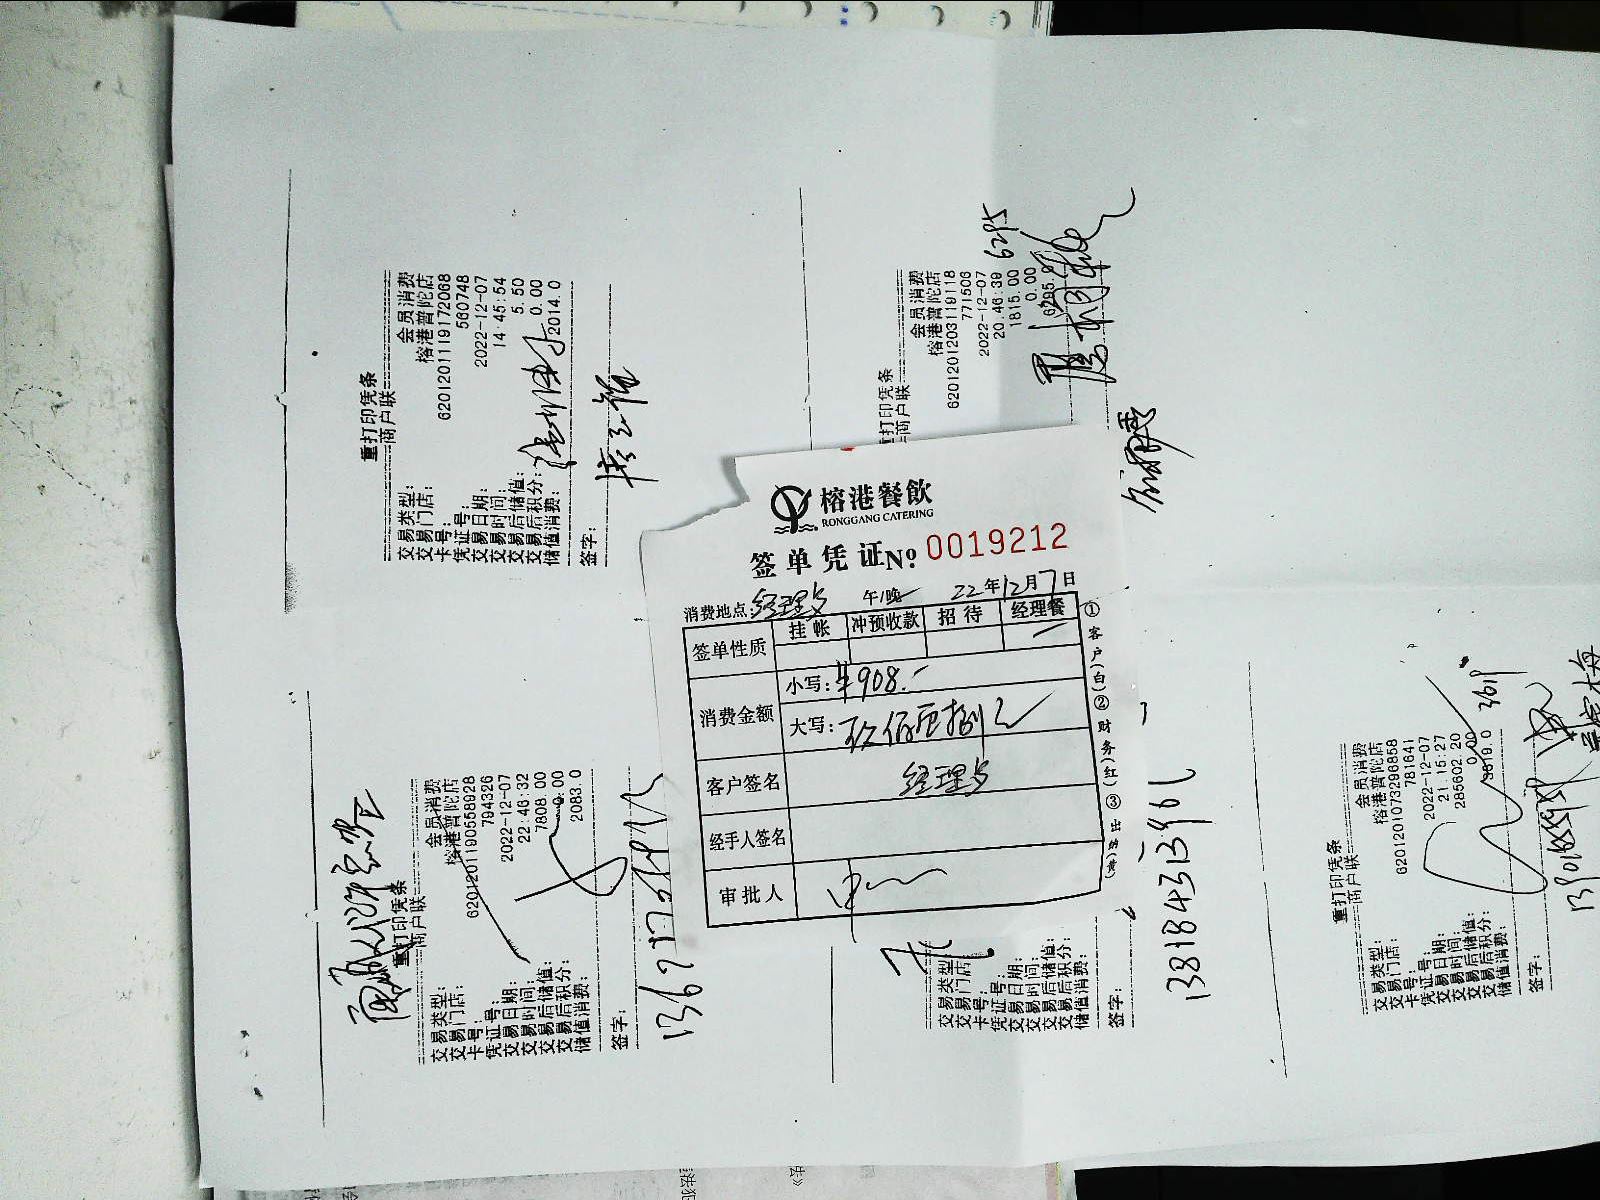 榕港餐飲
RONGGANG CATERING
签单凭证 No. 0019212
消费地点: 午/晚 22年12月7日
签单性质 挂帐 冲预收款 招待 经理餐
消费金额 小写: ¥908.-
大写: 玖佰零捌元
客户签名
经手人签名
审批人
①客户(白)②财务(红)③
重打印凭条
商户联
交易类型: 会员消费
交易门店: 榕港普陀店
卡号: 6201201119172068
凭证号: 560748
交易日期: 2022-12-07
交易时间: 14:45:54
交易后储值: 5.50
交易后积分: 0.00
储值消费: 2014.0
签字:
重打印凭条
商户联
会员消费
榕港普陀店
6201201203119118
771506
2022-12-07
20:46:39
1815.00
0.00
6295.0
6295
重打印凭条
商户联
交易类型: 会员消费
交易门店: 榕港普陀店
卡号: 6201201190558928
凭证号: 794326
交易日期: 2022-12-07
交易时间: 22:46:32
交易后储值: 7808.00
交易后积分: 0.00
储值消费: 2083.0
签字:
交易类型:
交易门店:
卡号:
凭证号:
交易日期:
交易时间:
交易后储值:
交易后积分:
储值消费:
签字:
重打印凭条
商户联
交易类型: 会员消费
交易门店: 榕港普陀店
卡号: 6201201073298858
凭证号: 781641
交易日期: 2022-12-07
交易时间: 21:15:27
交易后储值: 285602.20
交易后积分: 0.00
储值消费: 3619.0
签字:
3619